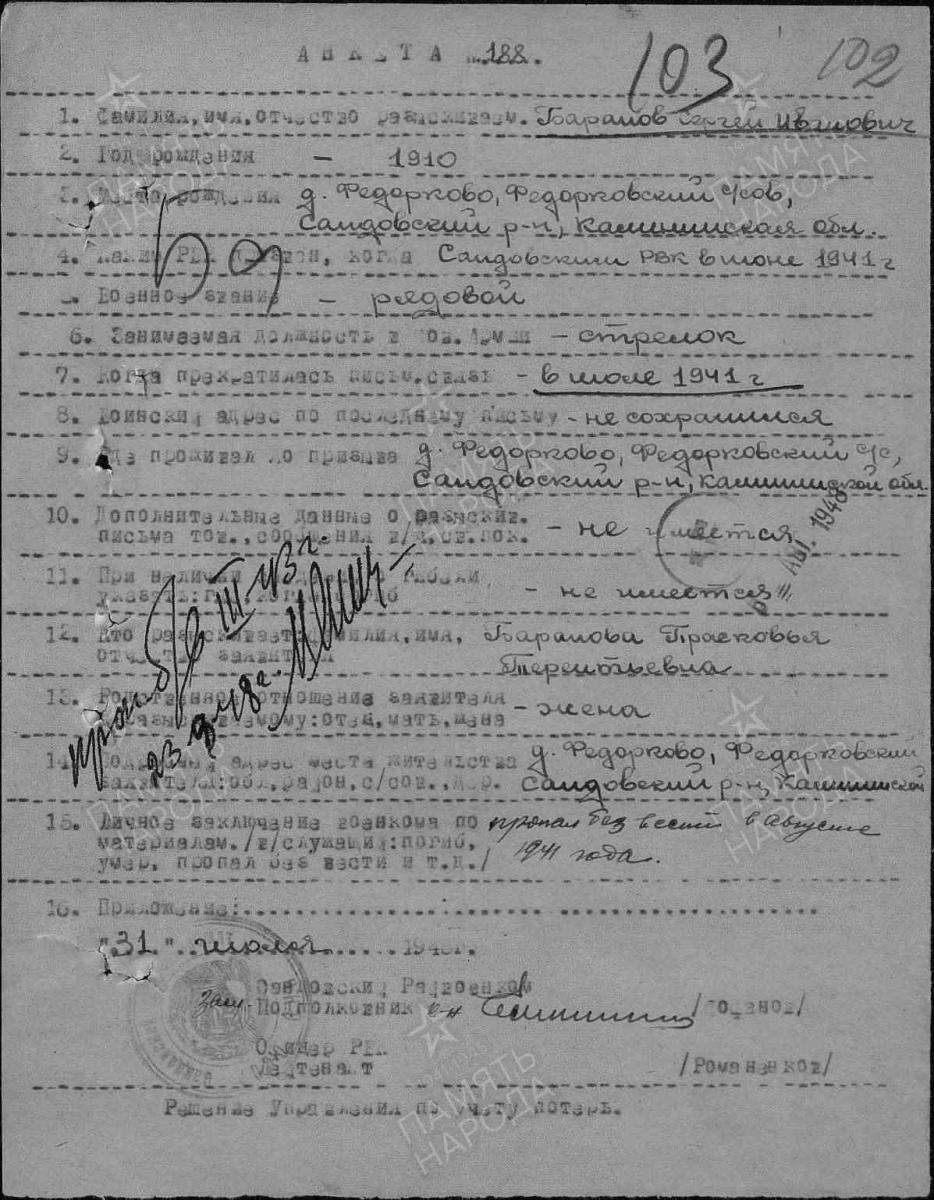 АНКЕТА №.188.
103 102
1. Фамилия,имя,отчество разыскиваем. Баранов Сергей Иванович
2. Год рождения – 1910
3. Место рождения д. Федорково, Федорковский с/сов,
Сандовский р-н, Калининская обл.
4. Каким РВК призван, когда Сандовским РВК в июне 1941 г
5. Военное звание – рядовой
6. Занимаемая должность в Сов.Армии – стрелок
7. Когда прекратилась письм.связь – в июле 1941 г
8. Воинский адрес по последнему письму – не сохранился
9. Где проживал до призыва д. Федорково, Федорковский с/с,
Сандовский р-н, Калининской обл.
10. Дополнительные данные о разыскив.
письма тов.,сообщения в/ч,св.пок. – не имеется
авг. 1948
11. При наличии
указать: – не имеется
12. Кто разыскивает:фамилия,имя, Баранова Прасковья
отчество заявителя Терентьевна
13. Родственное отношение заявителя
к разыскиваемому:отец,мать,жена – жена
проп. б/в III-43 г.
23
14. Подробный адрес места жительства д. Федорково, Федорковский
заявителя:обл,район,с/сов.,дер. Сандовский р-н, Калининской
15. Личное заключение военкома по пропал без вести в августе
материалам./в/служащий:погиб, 1941 года.
умер, пропал без вести и т.д./
16. Приложение:
"31" июля 194 г.
Сандовский Райвоенком
Зам. Подполковник
Офицер РВК
Лейтенант /Романенков/
Решение Управления по учету потерь.
ПАМЯТЬ
НАРОДА